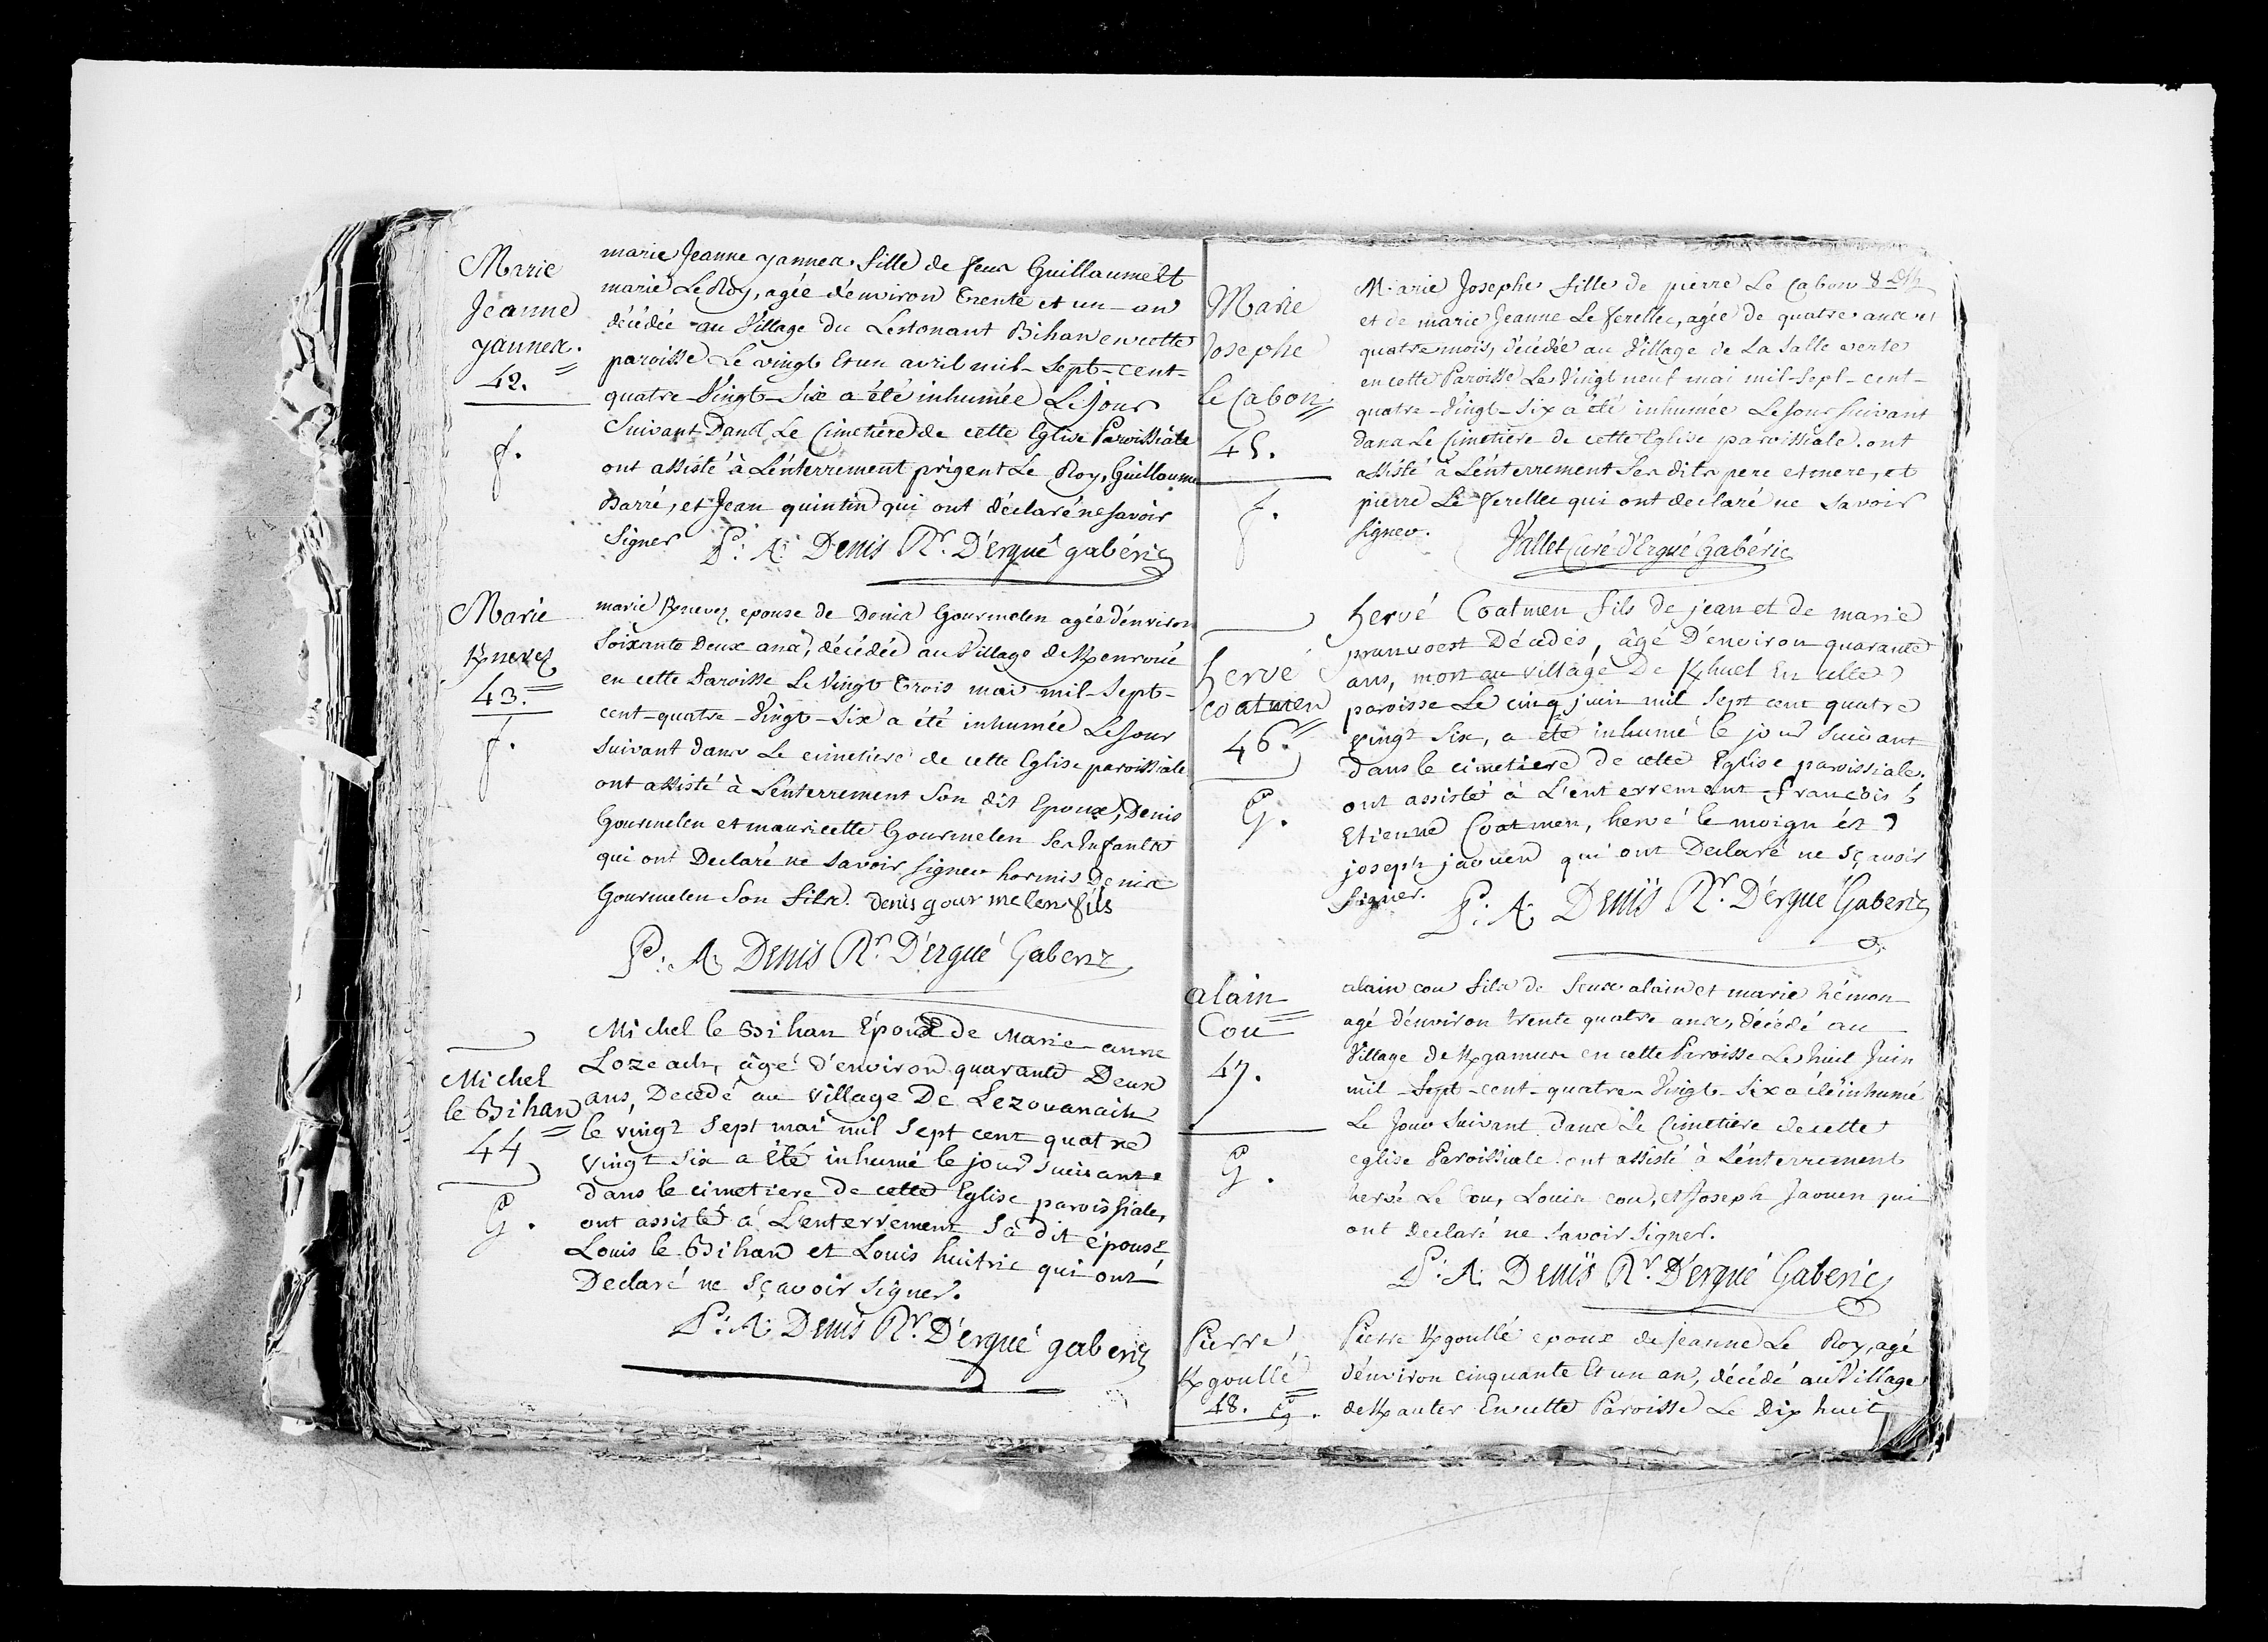 Marie
Jeanne
yannex.
42.
f.
marie Jeanne yannex fille de feux Guillaume Et
marie Le Roy, agée d'environ Trente et un an
décédée au Village du Lestonant Bihan en cette
paroisse Le vingt Et un avril mil-Sept-cent-
quatre-Vingt-Six a été inhumée Le jour
Suivant Dans Le Cimetière de cette Eglise Paroissiale
ont assisté à L'enterrement prigent Le Roy, Guillaume
Barré, et Jean quintin qui ont déclaré ne savoir
Signer P: A: Denis Rr. D'ergué gabéric
Marie
Kknevez
43.
f.
marie Kknevez epouse de Denis Gourmelen agée d'environ
Soixante Deux ans, décédée au Village de Kkenroué
en cette Paroisse Le Vingt Trois mai mil-Sept-
cent-quatre-Vingt-Six a été inhumée Le jour
Suivant dans Le cimetiere de cette Eglise paroissiale
ont assisté à L'enterrement Son dit Epoux, Denis
Gourmelen et mauricette Gourmelen Ses Enfants
qui ont Declaré ne savoir signer hormis Denis
Gourmelen Son fils. Denis gourmelen fils
P: A: Denis Rr. D'ergué Gaberic
Michel
le Bihan
44
G.
Michel le Bihan Époux de Marie-anne
Lozeach, âgé d'environ quarante Deux
ans, Decedé au Village De Lezouanach
le vingt Sept mai mil Sept cent quatre
vingt Six a Été inhumé le jour suivant
dans le cimetiere de cette Eglise paroissiale,
ont assisté à L'enterrement Sa dit épouse
Louis le Bihan et Louis huitric qui ont
Declaré ne sçavoir signer.
P: A: Denis Rr. D'ergué gaberic
Marie
Josephe
Le Cabon
45.
f.
Marie Josephe fille de pierre Le Cabon
et de marie Jeanne Le ferellec, agée de quatre ans et
quatre mois, décédée au Village de La Salle verte
en cette Paroisse Le Vingt neuf mai mil-Sept-cent-
quatre-Vingt-Six a été inhumée Le jour suivant
dans Le Cimetiere de cette Eglise paroissiale. ont
assisté à L'enterrement Ses dits pere et mere, et
pierre Le ferellec qui ont declaré ne savoir
signer. Vallet Curé d'Ergué Gabéric
hervé
Coatmen
46.
G.
hervé Coatmen fils de jean et de marie
prunvoest Décedés, âgé D'environ quarante
ans, mort au village De Kkhuel En cette
paroisse Le cinq juin mil Sept cent quatre
vingt Six, a été inhumé le jour Suivant
dans le cimetiere de cette Eglise paroissiale.
ont assisté à L'enterrement françois &
Etienne Coatmen, hervé le moign et
joseph jaouen qui ont Declaré ne sçavoir
signer. P: A: Deniis Rr. D'ergué Gaberic
alain
Cou
47.
G.
alain cou fils de feux alain et marie hémon
agé d'environ trente quatre ans, décédé au
Village de Kkgamus en cette Paroisse Le huit Juin
mil-Sept-cent-quatre-Vingt-Six a été inhumé
Le Jour Suivant dans Le Cimetiere de cette
eglise Paroissiale. ont assisté à L'enterrement
hervé Le Cou, Louis cou, et Joseph Jaouen qui
ont Declaré ne savoir signer.
P: A: Deniis Rr. D'ergué Gaberic
Pierre
Kkgoullé
48. G.
Pierre Kkgoullé epoux de Jeanne Le Roy, agé
d'environ cinquante Et un an, décédé au Village
de Kkauter En cette Paroisse Le Dix huit